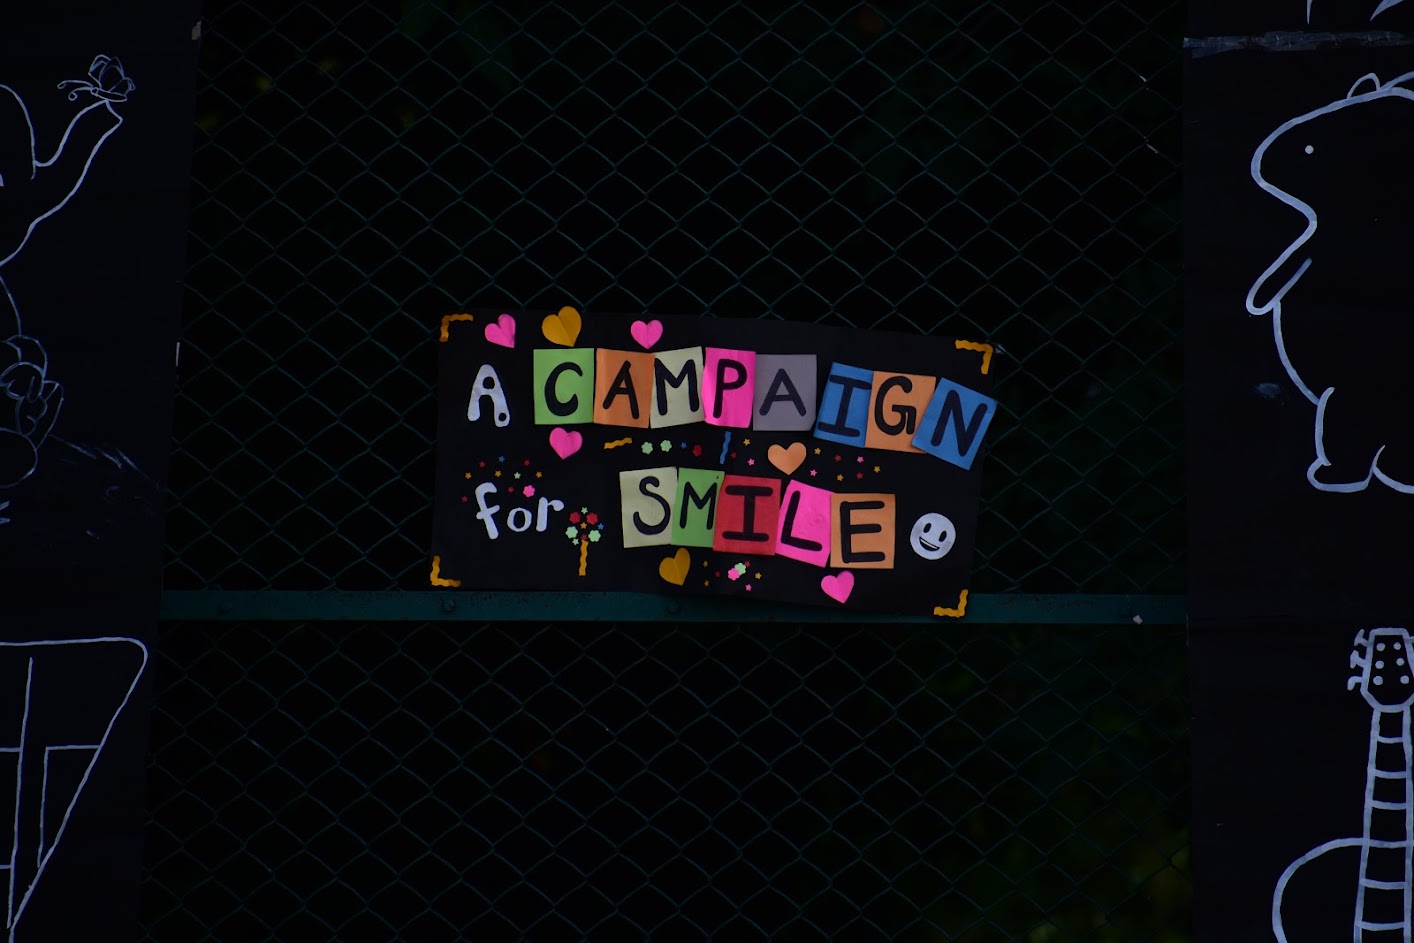 A CAMPAIGN
for SMILE